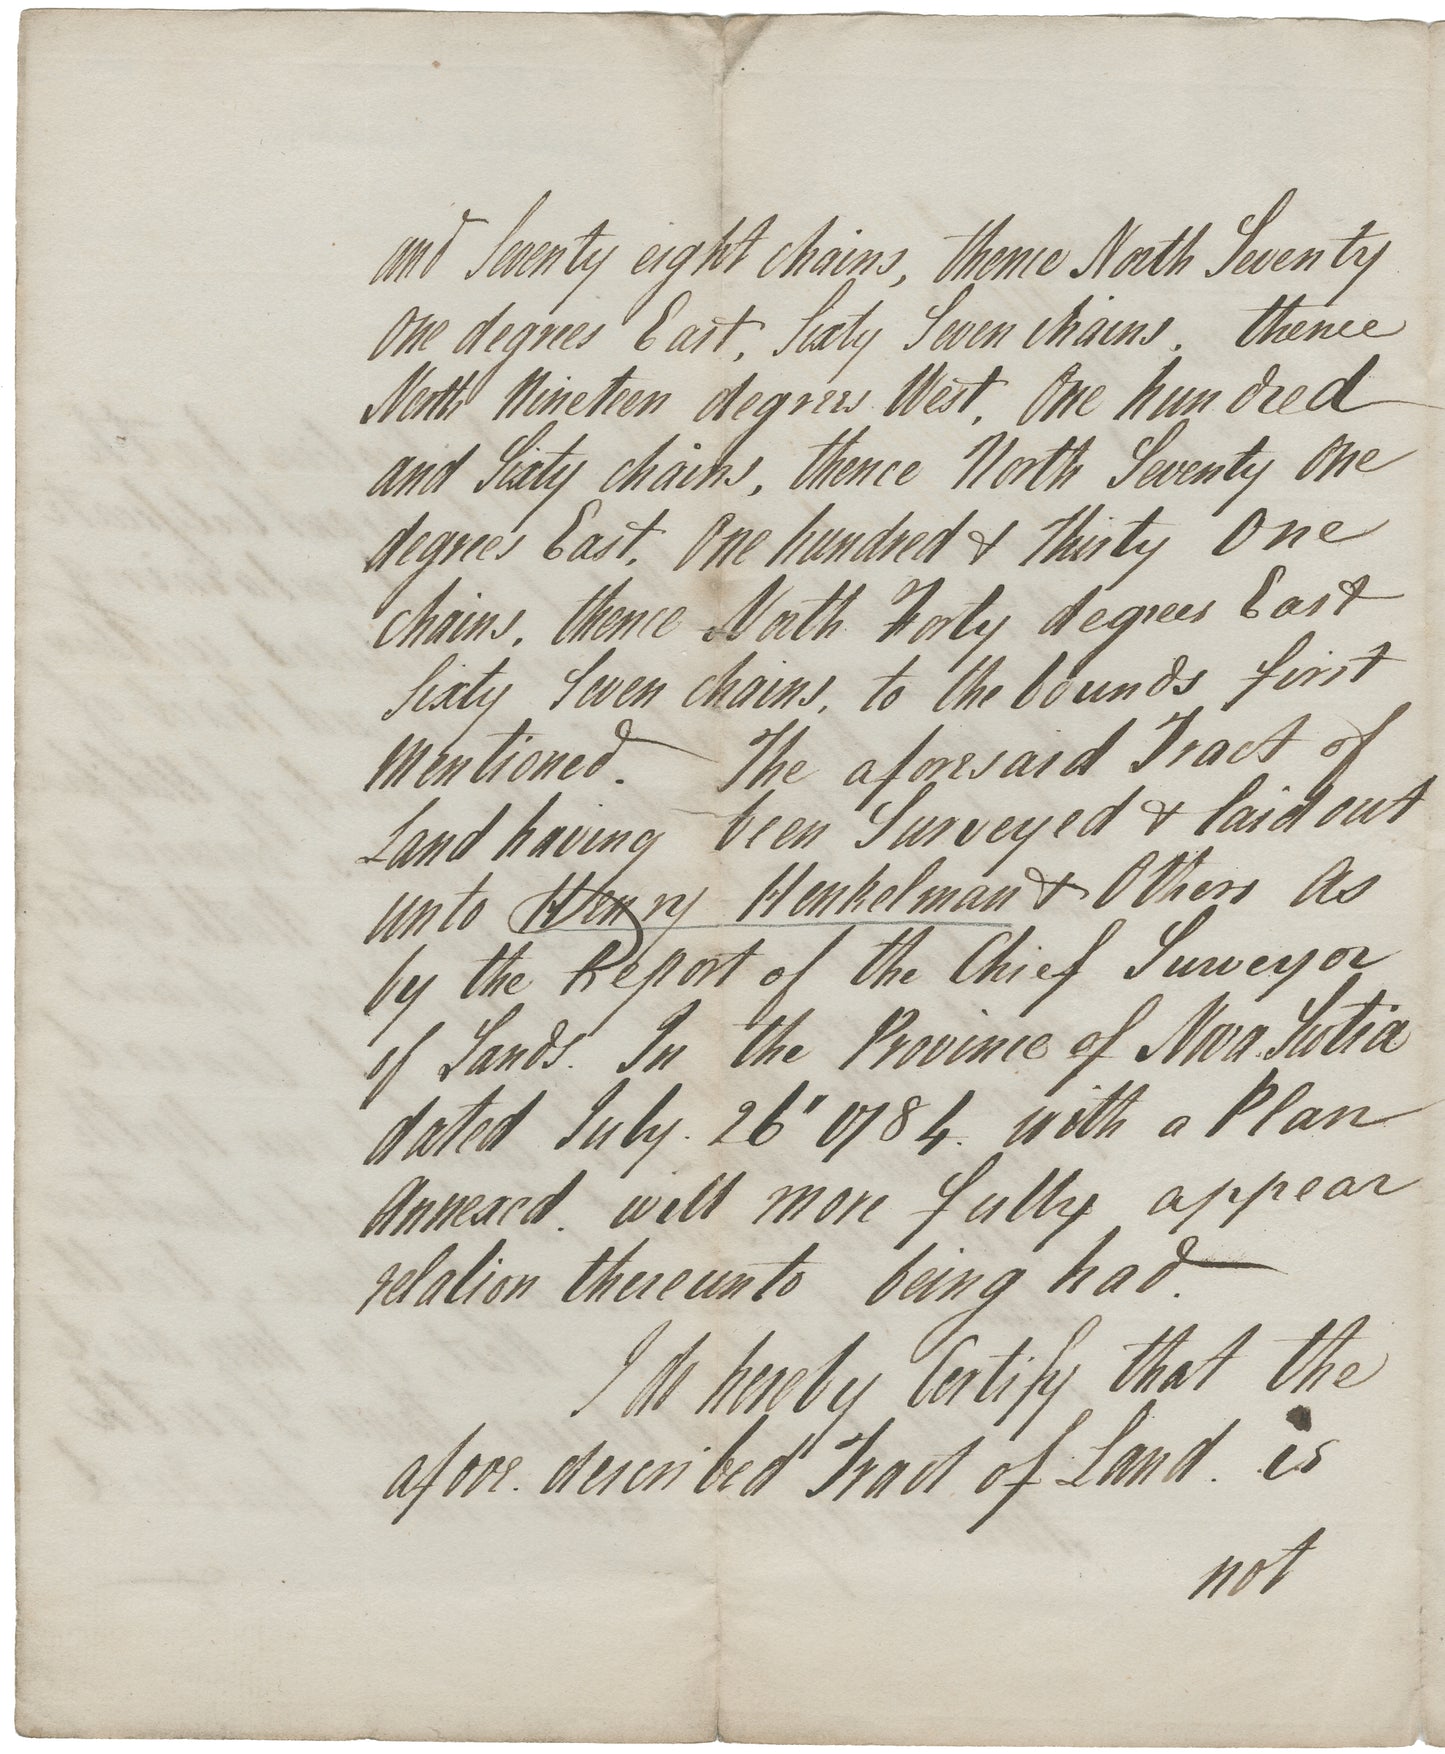 and Seventy eight chains, thence North Seventy
One degrees East, Sixty Seven chains, thence
North Nineteen degrees West, One hundred
and Sixty chains, thence North Seventy One
degrees East, One hundred & Thirty One
chains, thence North Forty degrees East
Sixty Seven chains, to the bounds first
Mentioned. The aforesaid Tract of
Land having been Surveyed & laid out
unto Henry Henkelman & Others As
by the Report of the Chief Surveyor
of Lands. In the Province of Nova Scotia
dated July. 26" 1784. with a Plan
Annexed. will more fully appear
relation thereunto being had.
I do hereby Certify that the
afore. described Tract of Land. is
not